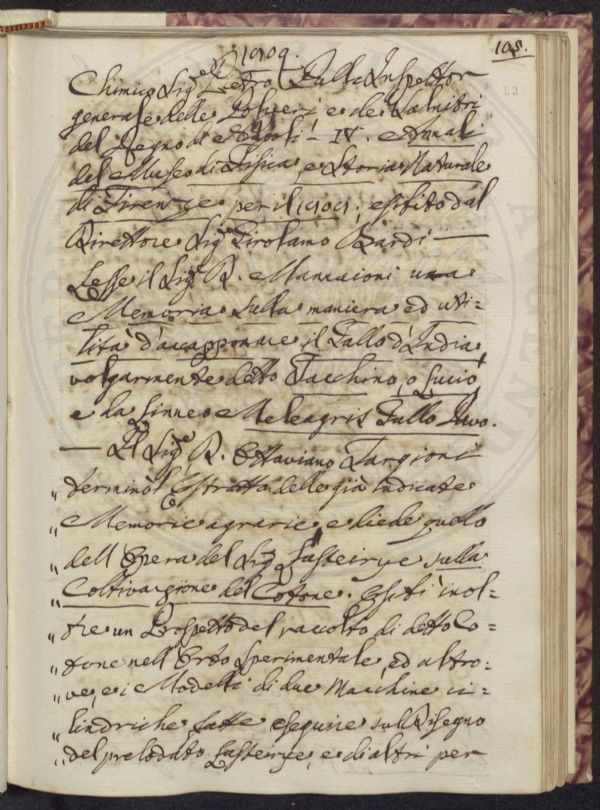 1809.
105.
Chimico Sig.e Pietro Pulli Inspettor
generale delle Polveri e de Salnitri
del Regno di Napoli - IV. Annali
del Museo di Fisica, e Storia Naturale
di Firenze per il 1809; esibito dal
Direttore Sig.e Girolamo Bardi —
Lesse il Sig.e D. Mancaioni una
Memoria sulla maniera ed uti-
lità d'accapponare il Gallo d'India,
volgarmente detto Tacchino, o Lucio,
e da Linneo Meleagris Gallo Pavo.
— Il Sig.e D. Ottaviano Targioni
„ terminò l'Estratto delle già indicate
„ Memorie agrarie, e diede quello
„ dell'Opera del Sig.e Lasteirye sulla
„ Coltivazione del Cotone. Esibì inol=
„ tre un Prospetto del raccolto di detto Co=
„ tone nell'Orto Sperimentale, ed altro=
„ ve, e i Modelli di due Macchine ci=
„ lindriche fatte eseguire sull Disegno
„ del prelodato Lasteirye, e di altri per